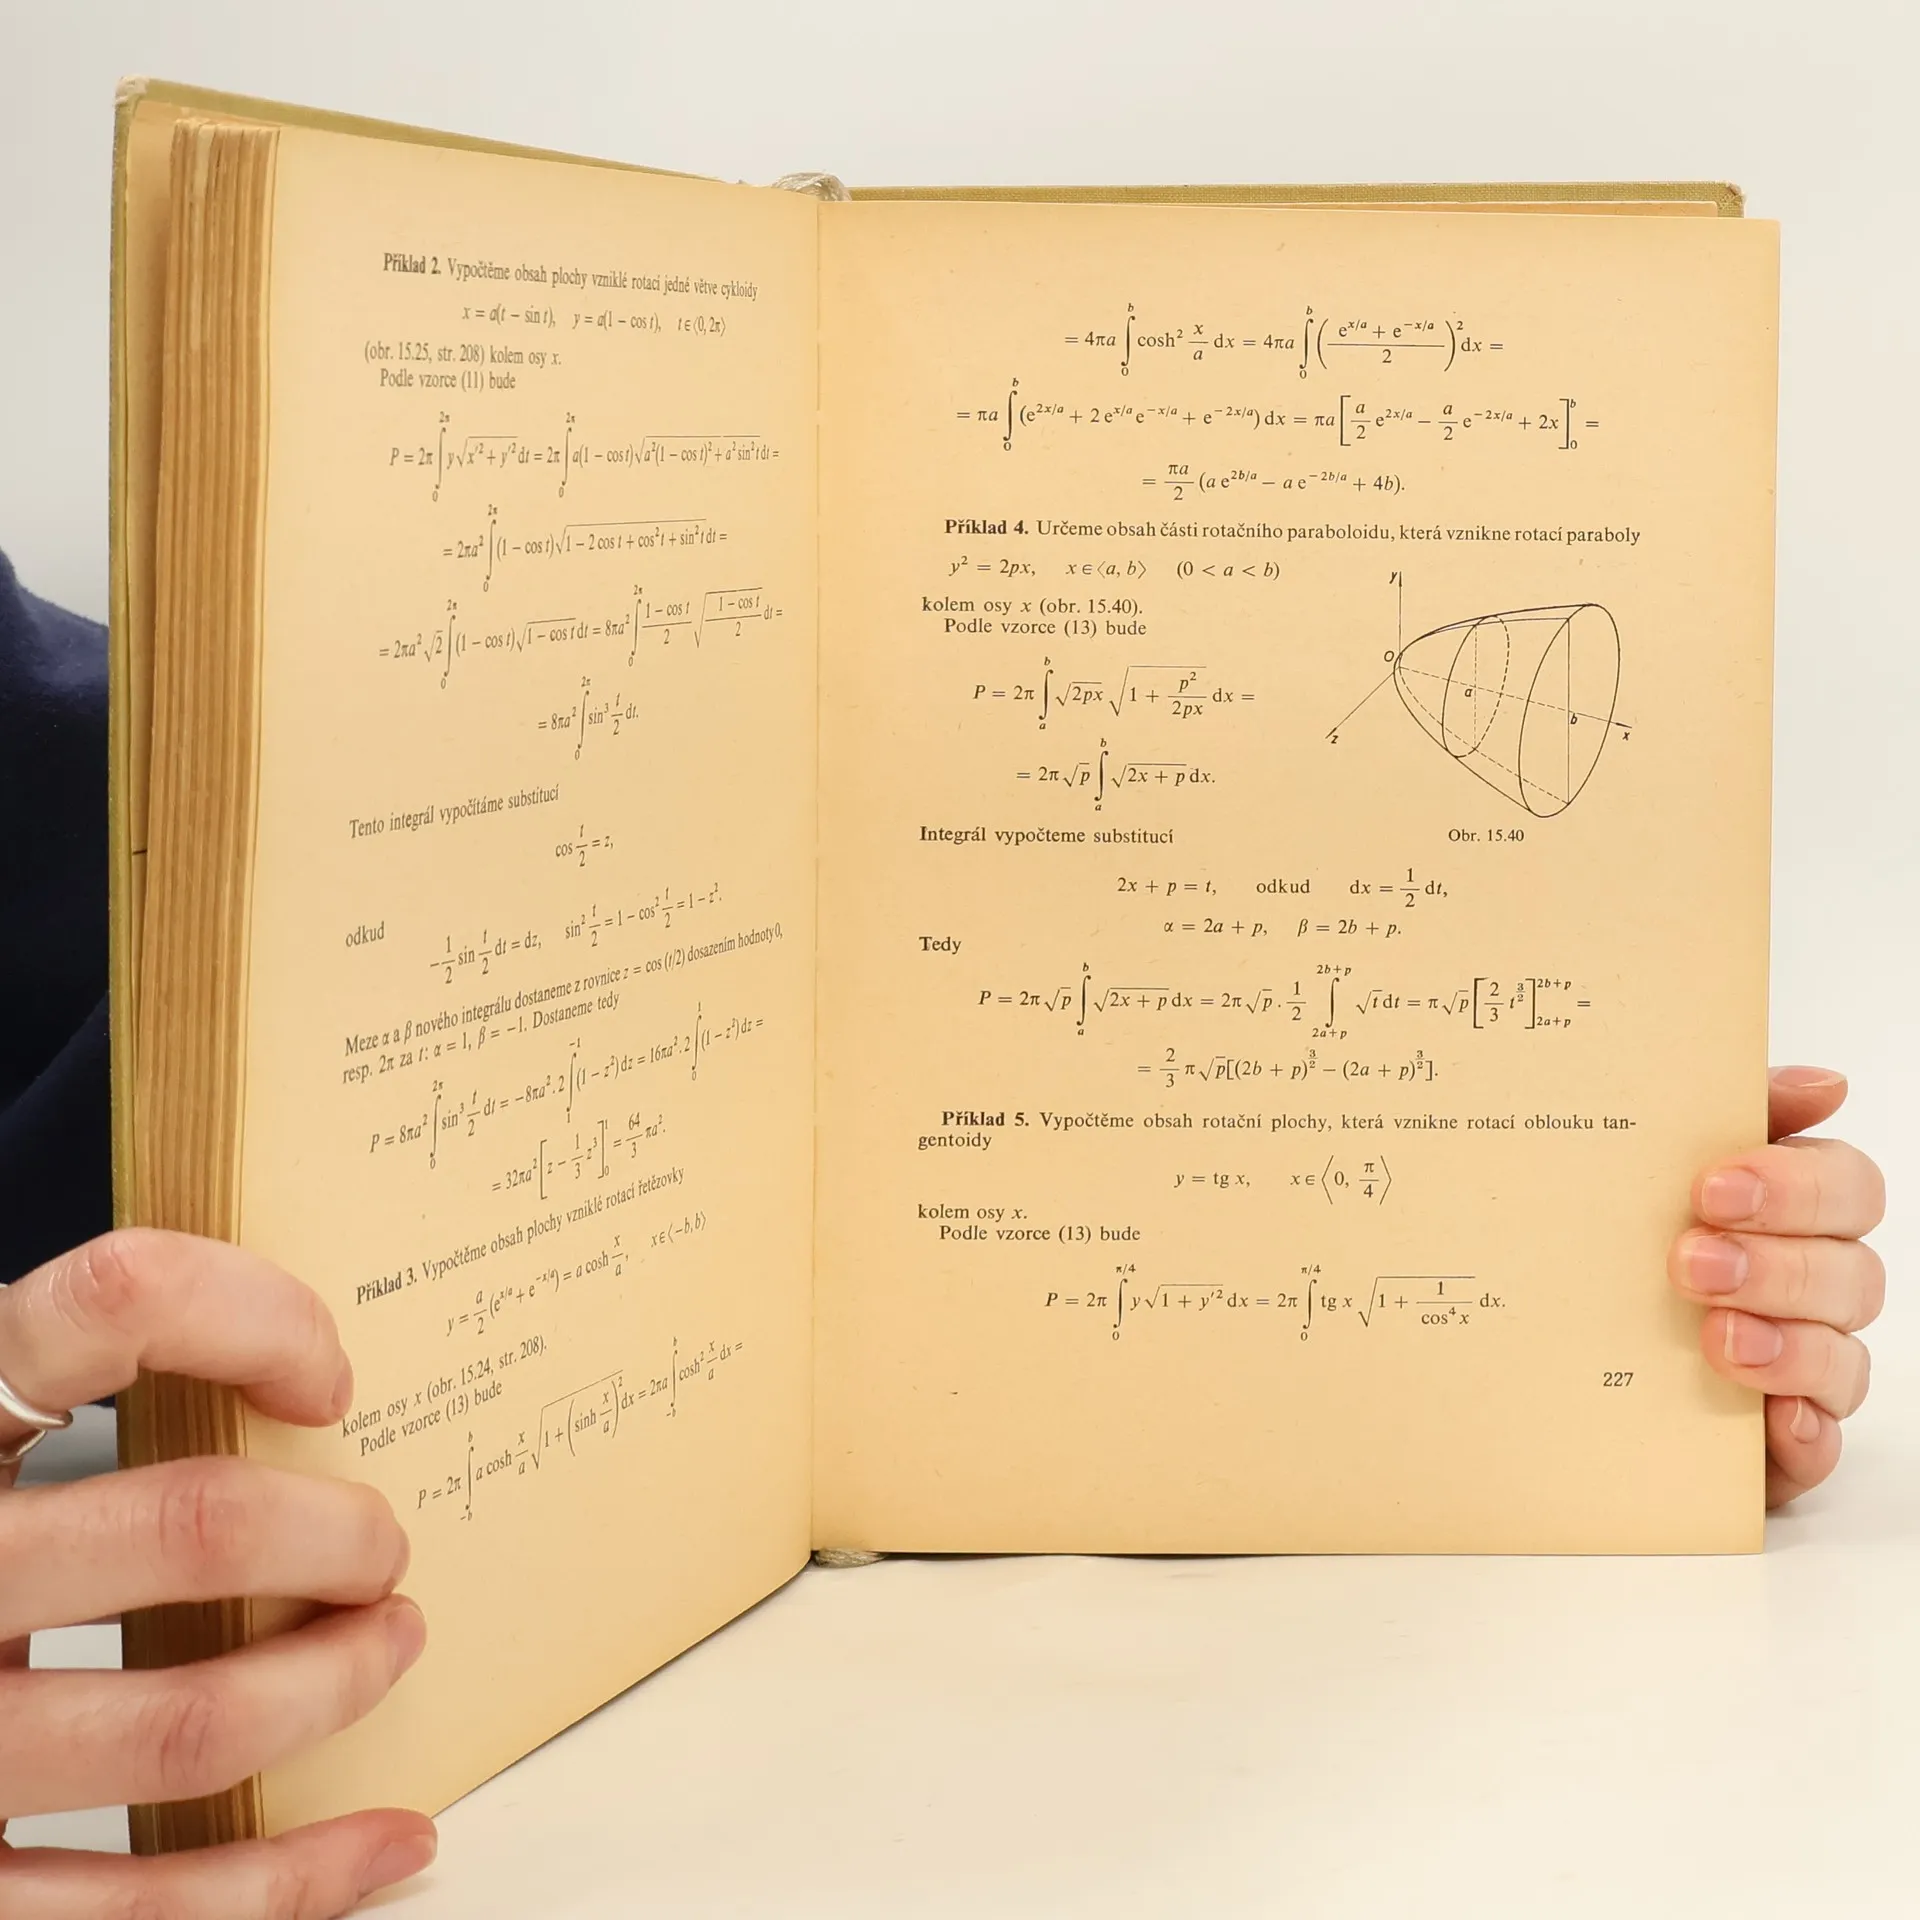 Příklad 2. Vypočtěme obsah plochy vzniklé rotací jedné větve cykloidy
x = a(t − sin t), y = a(1 − cos t), t ∈ ⟨0, 2π⟩
(obr. 15.25, str. 208) kolem osy x.
Podle vzorce (11) bude
P = 2π ∫₀^{2π} y √(x'² + y'²) dt = 2π ∫₀^{2π} a(1 − cos t) √(a²(1 − cos t)² + a² sin² t) dt =
= 2πa² ∫₀^{2π} (1 − cos t) √(1 − 2 cos t + cos² t + sin² t) dt =
= 2πa² √2 ∫₀^{2π} (1 − cos t) √(1 − cos t) dt = 8πa² ∫₀^{2π} (1 − cos t)/2 √((1 − cos t)/2) dt =
= 8πa² ∫₀^{2π} sin³ t/2 dt.
Tento integrál vypočítáme substitucí
cos t/2 = z,
odkud
−1/2 sin t/2 dt = dz, sin² t/2 = 1 − cos² t/2 = 1 − z².
Meze α a β nového integrálu dostaneme z rovnice z = cos (t/2) dosazením hodnoty 0,
resp. 2π za t: α = 1, β = −1. Dostaneme tedy
P = 8πa² ∫₀^{2π} sin³ t/2 dt = −8πa² . 2 ∫₁^{−1} (1 − z²) dz = 16πa² . 2 ∫₀^1 (1 − z²) dz =
= 32πa² [z − 1/3 z³]₀^1 = 64/3 πa².
Příklad 3. Vypočtěme obsah plochy vzniklé rotací řetězovky
y = a/2 (e^{x/a} + e^{−x/a}) = a cosh x/a, x ∈ ⟨−b, b⟩
kolem osy x (obr. 15.24, str. 208).
Podle vzorce (13) bude
P = 2π ∫_{−b}^b a cosh x/a √(1 + (sinh x/a)²) dx = 2πa ∫_{−b}^b cosh² x/a dx =
= 4πa ∫₀^b cosh² x/a dx = 4πa ∫₀^b ((e^{x/a} + e^{−x/a})/2)² dx =
= πa ∫₀^b (e^{2x/a} + 2 e^{x/a} e^{−x/a} + e^{−2x/a}) dx = πa [a/2 e^{2x/a} − a/2 e^{−2x/a} + 2x]₀^b =
= πa/2 (a e^{2b/a} − a e^{−2b/a} + 4b).
Příklad 4. Určeme obsah části rotačního paraboloidu, která vznikne rotací paraboly
y² = 2px, x ∈ ⟨a, b⟩ (0 < a < b)
kolem osy x (obr. 15.40).
Podle vzorce (13) bude
P = 2π ∫_a^b √(2px) √(1 + p²/2px) dx =
= 2π √p ∫_a^b √(2x + p) dx.
y
O
a
b
z
x
Obr. 15.40
Integrál vypočteme substitucí
2x + p = t, odkud dx = 1/2 dt,
α = 2a + p, β = 2b + p.
Tedy
P = 2π √p ∫_a^b √(2x + p) dx = 2π √p . 1/2 ∫_{2a+p}^{2b+p} √t dt = π √p [2/3 t^{3/2}]_{2a+p}^{2b+p} =
= 2/3 π √p[(2b + p)^{3/2} − (2a + p)^{3/2}].
Příklad 5. Vypočtěme obsah rotační plochy, která vznikne rotací oblouku tan-
gentoidy
y = tg x, x ∈ ⟨0, π/4⟩
kolem osy x.
Podle vzorce (13) bude
P = 2π ∫₀^{π/4} y √(1 + y'²) dx = 2π ∫₀^{π/4} tg x √(1 + 1/cos⁴ x) dx.
227